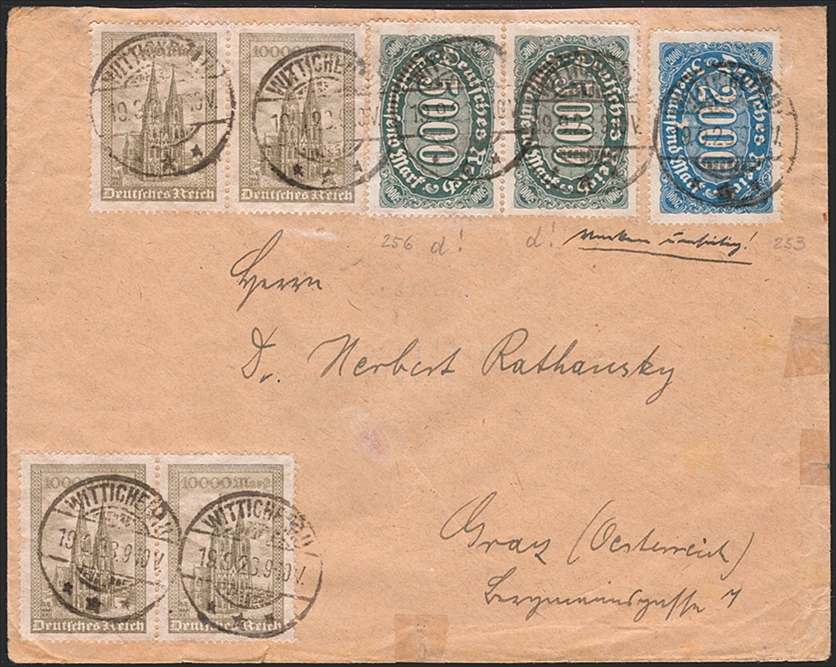 10000 Mark
Deutsches Reich
WITTICHENAU
19.9.23.9-10V.
Deutsches Reich
5000
Fünftausend Mark
Deutsches Reich
5000
Fünftausend Mark
Deutsches Reich
2000
Zweitausend Mark
256 d! d! Marken 253
Herrn
Dr. Herbert Rathausky
Graz (Oesterreich)
Bergmanngasse 7
10000 Mark
Deutsches Reich
10000 Mark
Deutsches Reich
WITTICHENAU
19.9.23.9-10V.
WITTICHENAU
19.9.23.9-10V.